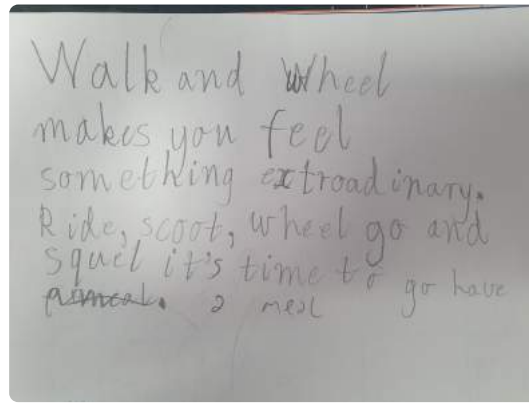 Walk and Wheel
makes you feel
something extroadinary.
Ride, scoot, wheel go and
squel it's time to go have
a meal